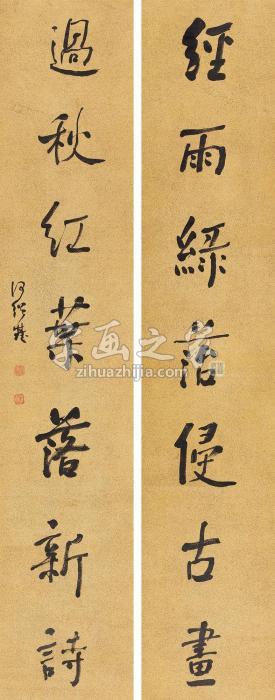 經雨綠苔侵古畫
過秋紅葉落新詩
何紹基
字画之家
zihuazhijia.com